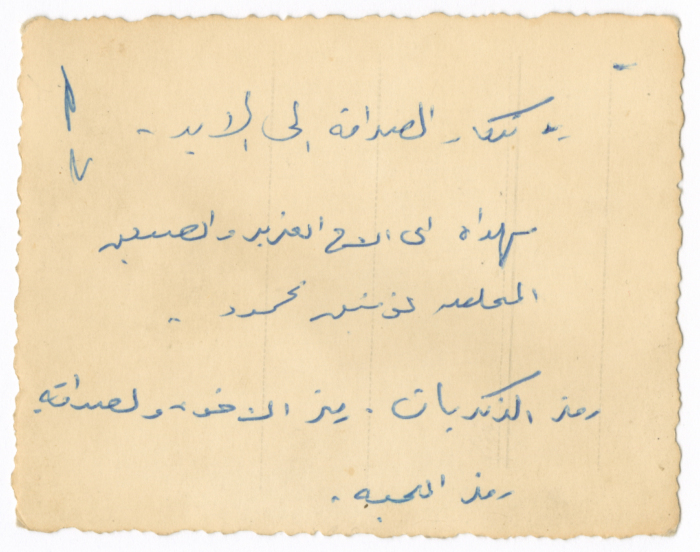 تذكار الصداقة إلى الابد -
مهداه الى الاخ العزيز والصديق
المخلص محمود .
رمز الذكريات . رمز الاخوة والصداقة
رمز المحبه .